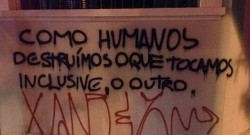 COMO HUMANOS
DESTRUÍMOS O QUE TOCAMOS
INCLUSIVE, O OUTRO.